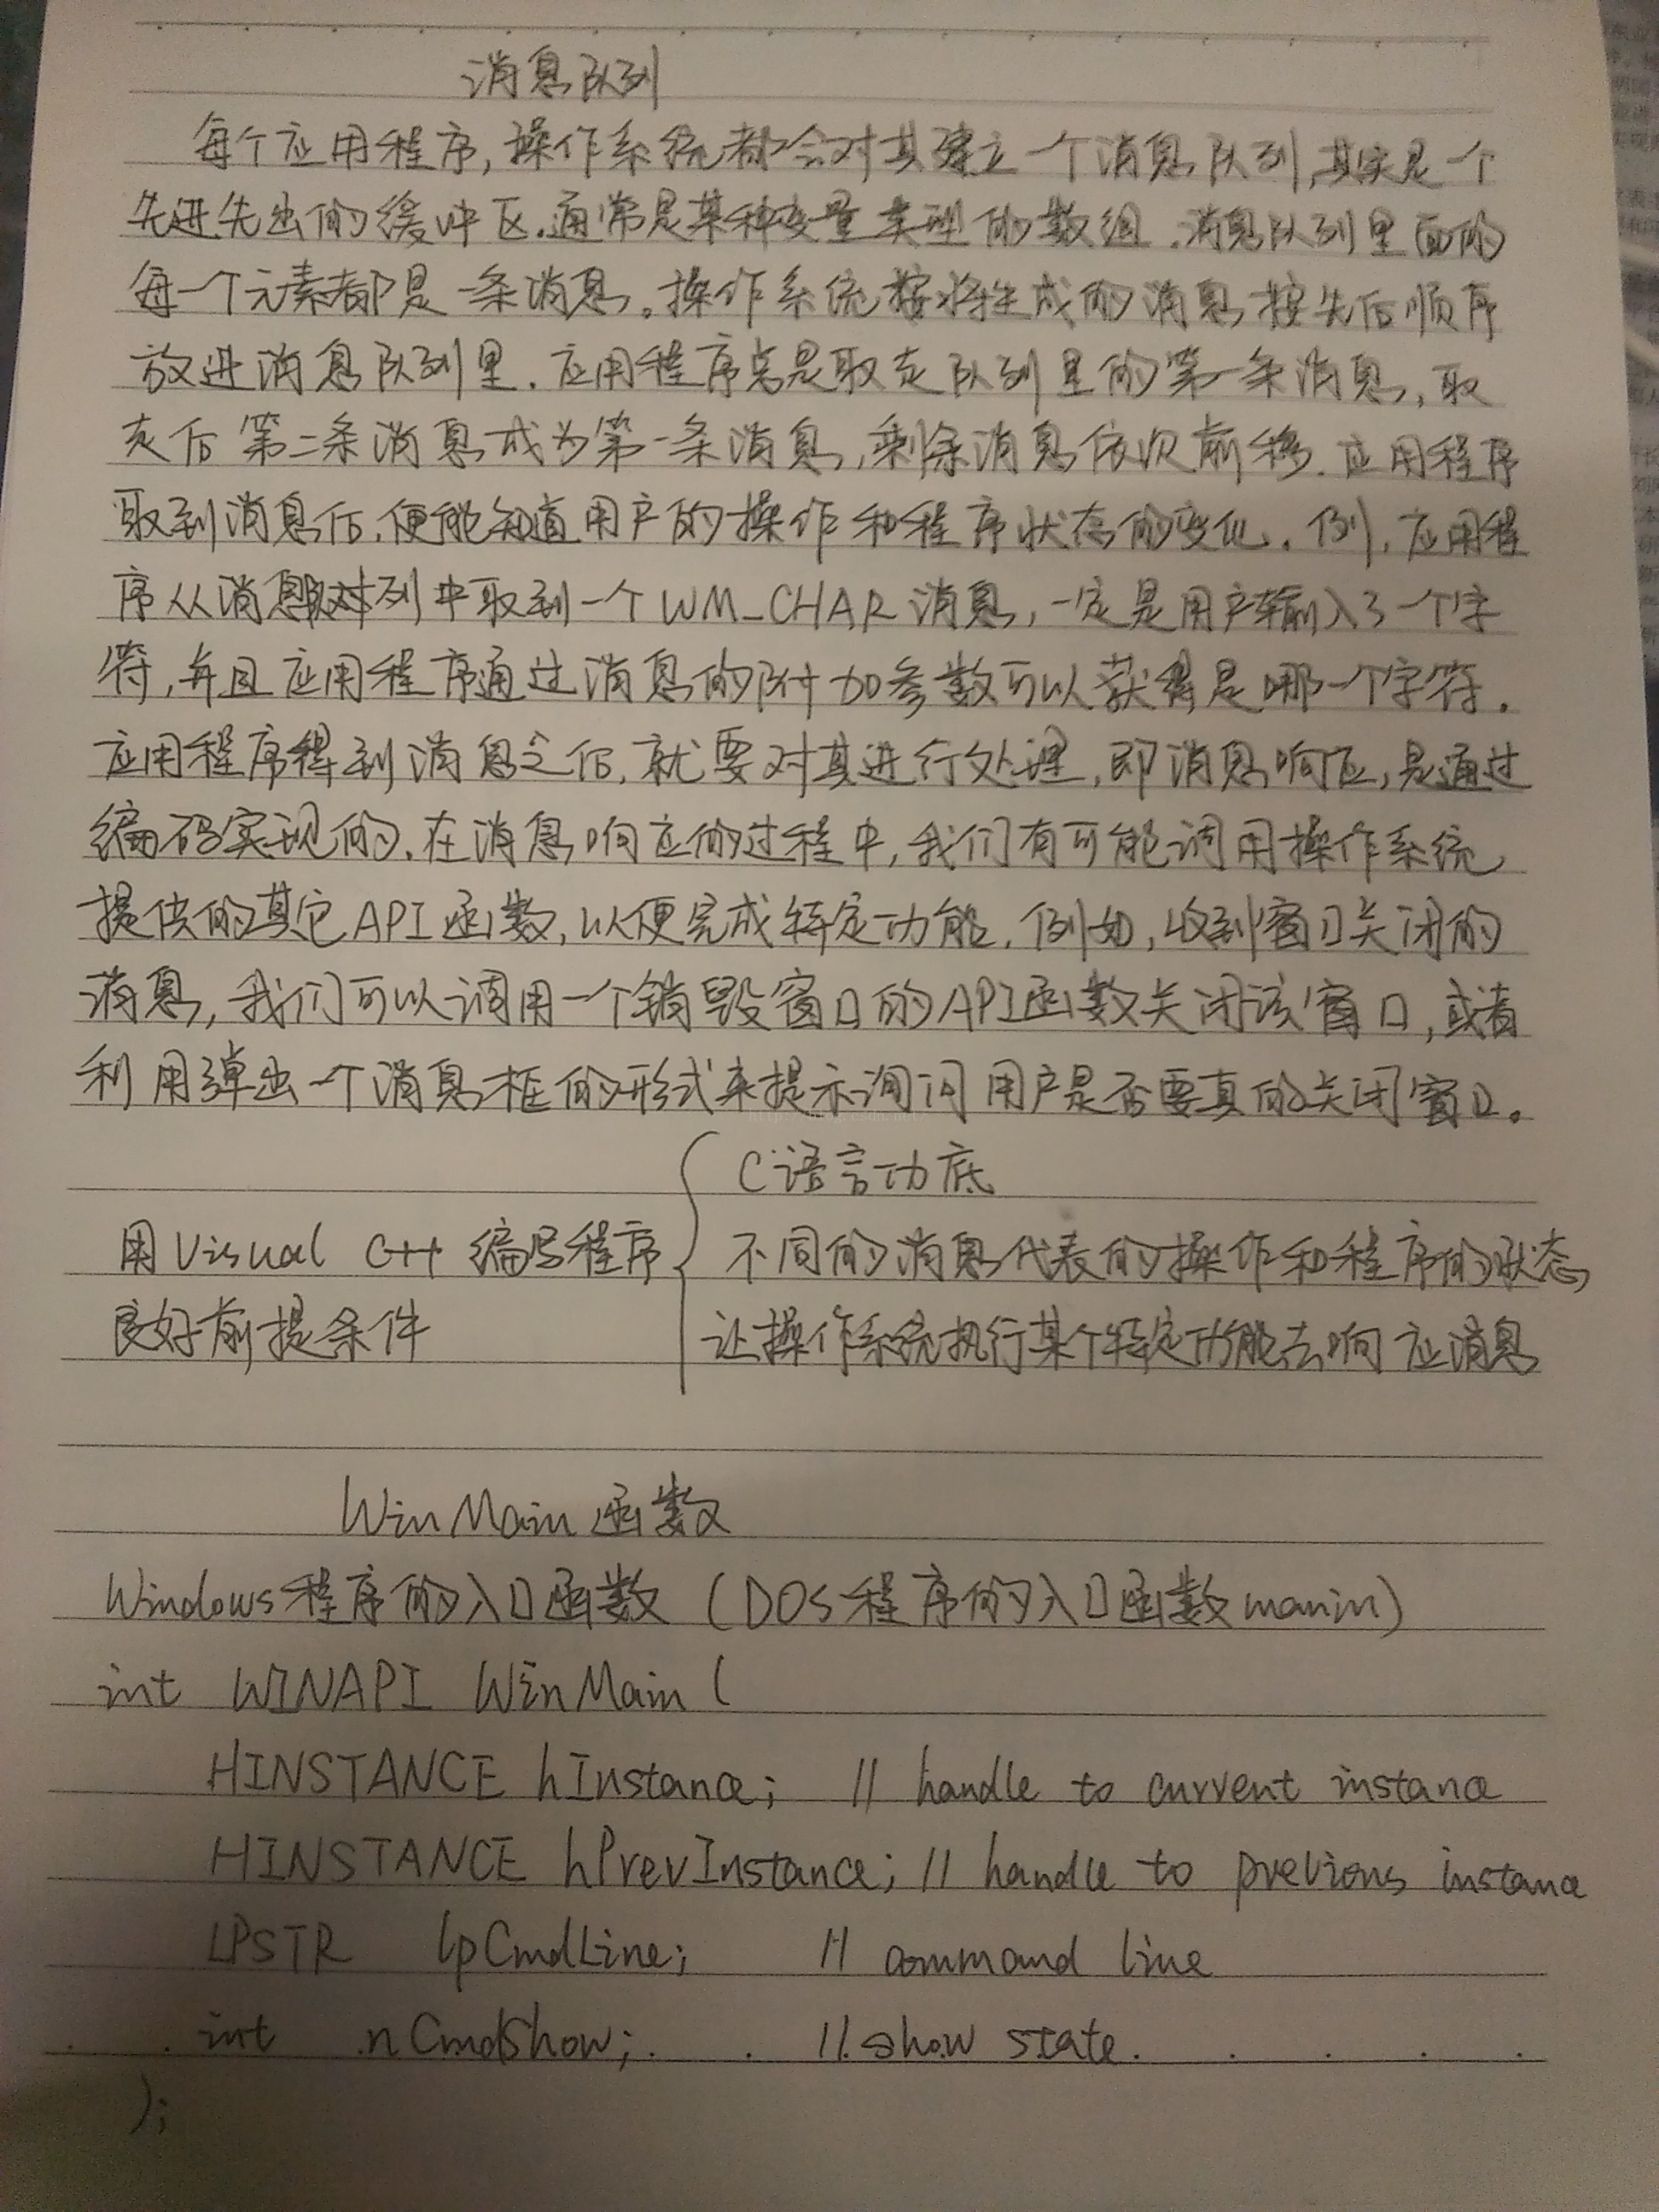 消息队列
每个应用程序,操作系统都会对其建立一个消息队列,其实是一个
先进先出的缓冲区.通常是某种变量类型的数组.消息队列里面的
每一个元素都是一条消息。操作系统按将生成的消息按先后顺序
放进消息队列里.应用程序总是取走队列里的第一条消息,取
走后第二条消息成为第一条消息,剩余消息依次前移.应用程序
取到消息后,便能知道用户的操作和程序状态的变化.例,应用程
序从消息队列中取到一个WM_CHAR消息,一定是用户输入了一个字
符,并且应用程序通过消息的附加参数可以获得是哪一个字符.
应用程序得到消息之后,就要对其进行处理,即消息响应,是通过
编码实现的.在消息响应的过程中,我们有可能调用操作系统
提供的其它API函数,以便完成特定功能.例如,收到窗口关闭的
消息,我们可以调用一个销毁窗口的API函数关闭该窗口,或者
利用弹出一个消息框的形式来提示询问用户是否要真的关闭窗口。
C语言功底
用Visual C++编写程序 不同的消息代表的操作和程序的状态
良好前提条件 让操作系统执行某个特定功能去响应消息
WinMain函数
Windows程序的入口函数(DOS程序的入口函数manin)
int WINAPI WinMain(
HINSTANCE hInstance; // handle to current instance
HINSTANCE hPrevInstance; // handle to previous instance
LPSTR lpCmdLine; // command line
int nCmdShow; // show state
);